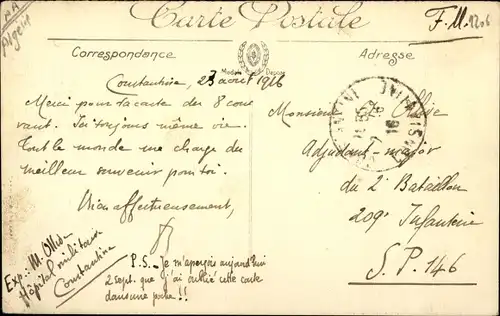 Carte Postale
F.M. 1206
AA
Algérie
Correspondance
Adresse
Constantine, 23 août 1916
Merci pour ta carte du 8 cou
rant. Ici toujours même vie.
Tout le monde me charge du
meilleur souvenir pour toi.
Bien affectueusement,
P.S. Je m'aperçois aujourd'hui
2 sept. que j'ai oublié cette carte
dans une poche !!
Exp.: M. Ollié
Hôpital militaire
Constantine
Monsieur Ollié
Adjudant-major
du 2e Bataillon
209e Infanterie
S.P. 146